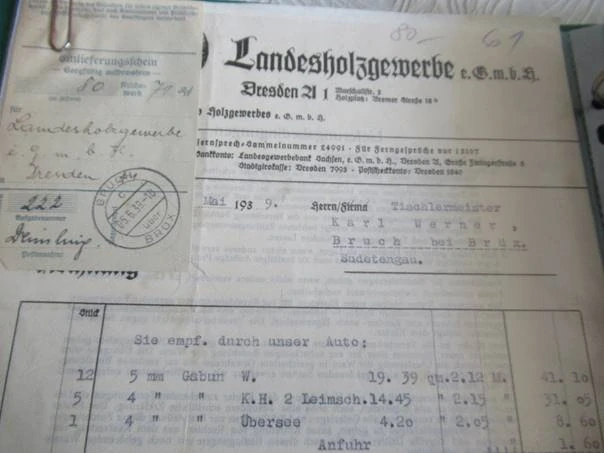 Einlieferungsschein
Sorgfältig aufbewahren
80
für
Landesholzgewerbe
e. G. m b H.
Dresden
222
Aufgabenummer
Postannahme
BRUCH
BRÜX
80- 61
Landesholzgewerbe e. G. m. b. H.
Dresden A 1
Holzgewerbes e. G. m. b. H.
Fernsprech-Sammelnummer 24991 · Für Ferngespräche nur 12107
Bankkonto: Landesgewerbebank Sachsen, e. G. m. b. H., Dresden A, Große Zwingerstraße
Stadtgirokasse: Dresden 7993 · Postscheckkonto: Dresden 1840
Mai 1939. Herrn/Firma Tischlermeister
Karl Werner,
Bruch bei Brüx.
Sudetengau.
Stück
Sie empf. durch unser Auto:
12 5 mm Gabun W. 19.39 qm. 2.12 M. 41.10
5 4 " " K.H. 2 Leimsch. 14.45 " 2.15 31.05
1 4 " " Übersee 4.20 " 2.05 8.60
Anfuhr 1.60